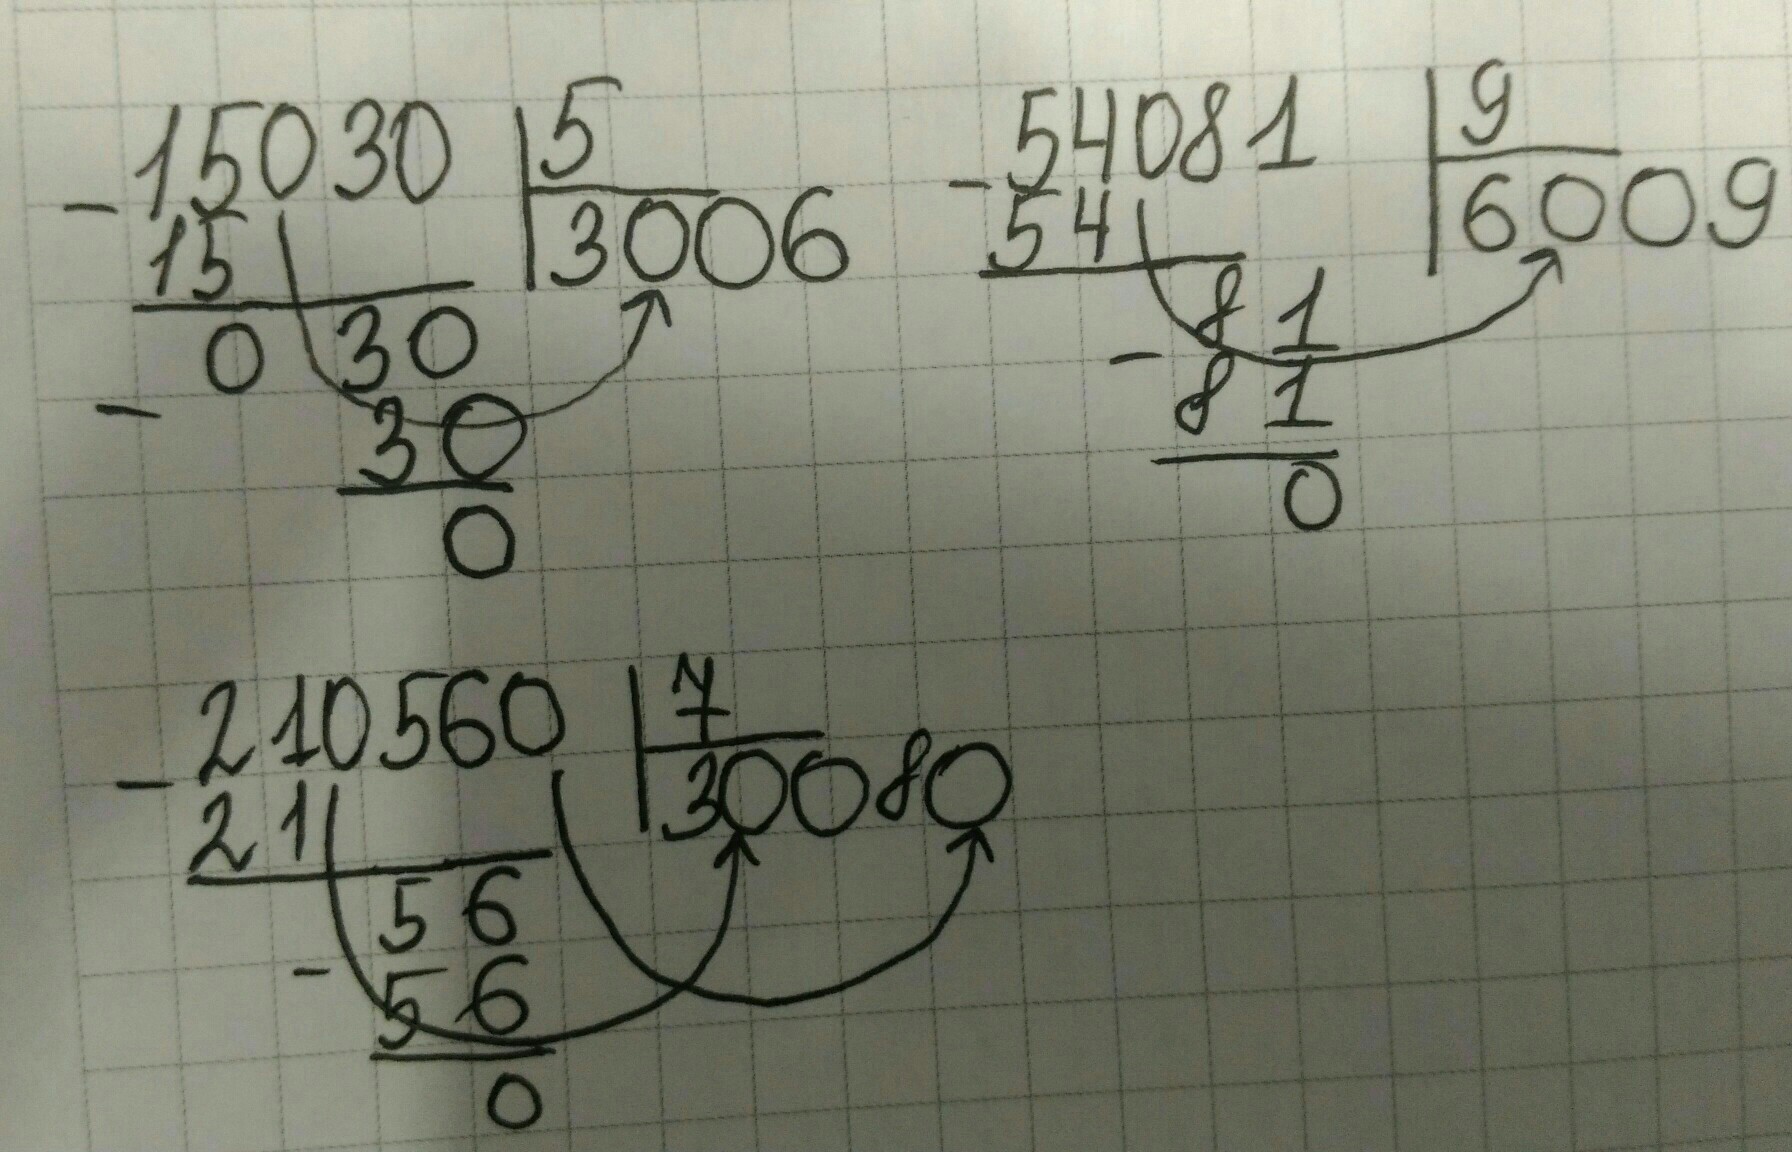 -15030 | 5
15 | 3006
0 30
- 30
0
-54081 | 9
54 | 6009
- 81
81
0
-210560 | 7
21 | 30080
56
- 56
0